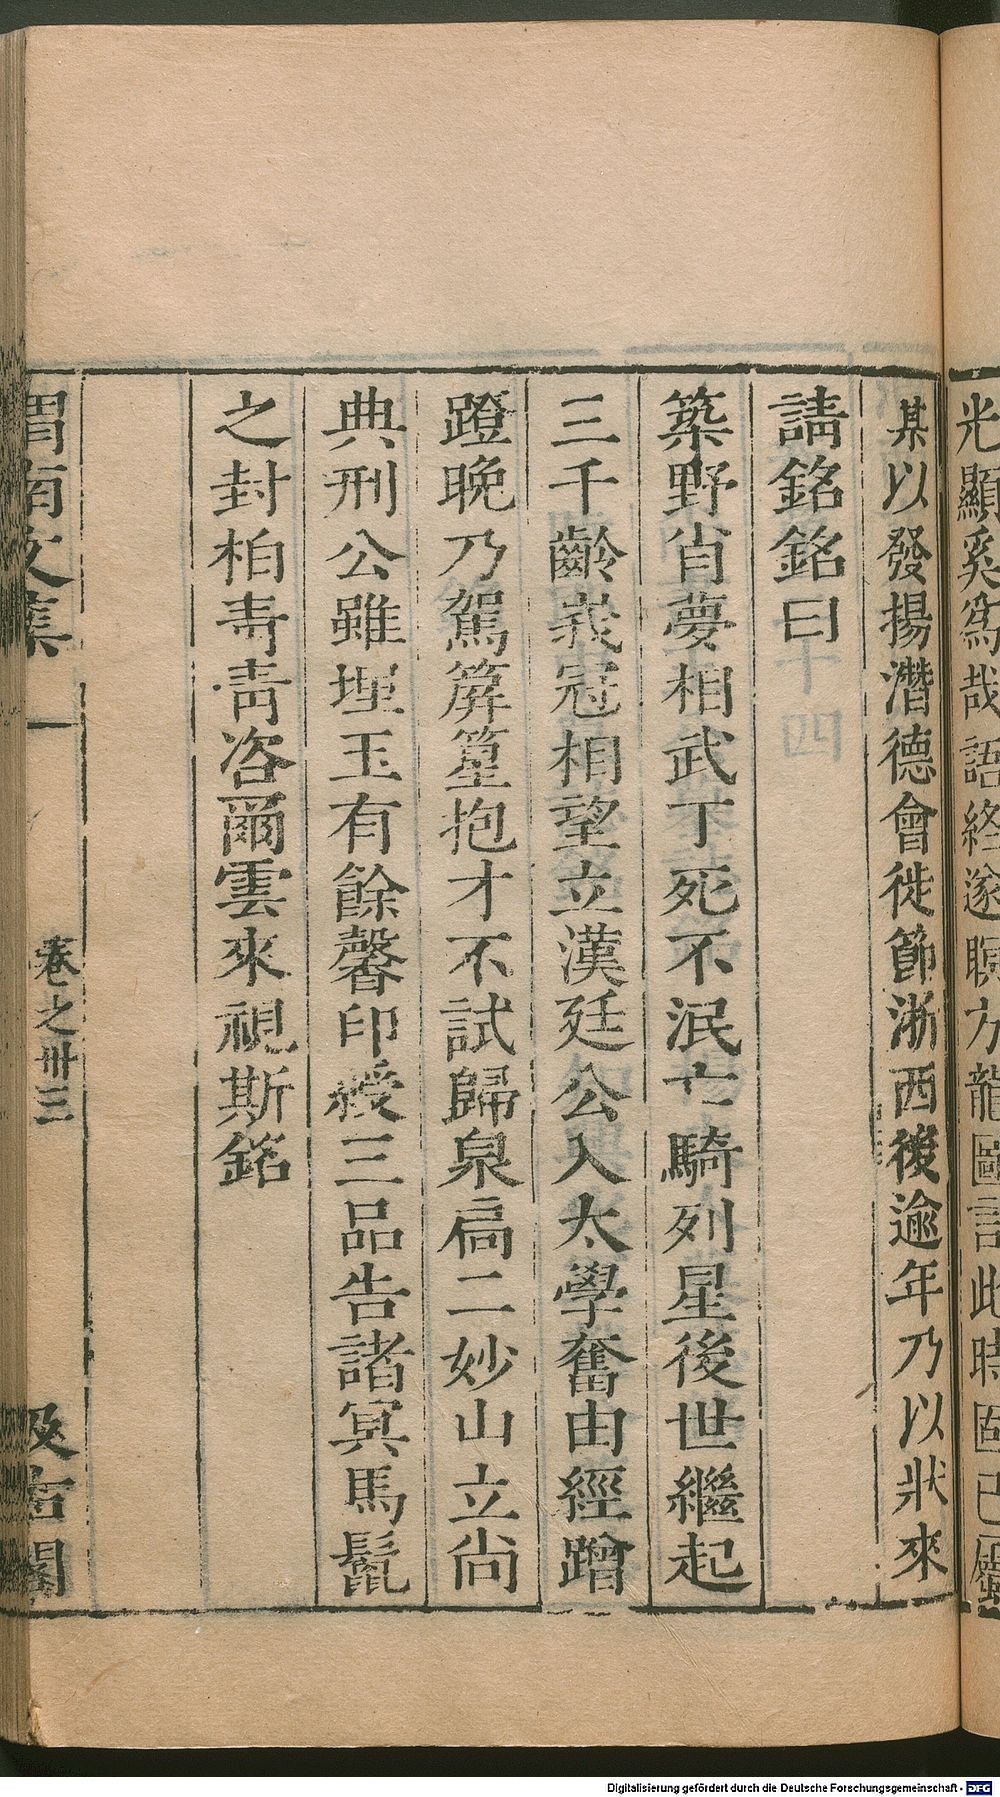 光顯奚爲哉語終遂瞑方龍圖言此時固已屬
某以發揚潛德會徙節浙西後逾年乃以狀來
請銘銘曰
築野肖夢相武丁死不泯亡騎列星後世繼起
三千齡峩冠相望立漢廷公入太學奮由經蹭
蹬晚乃駕篳篁抱才不試歸泉扃二妙山立尙
典刑公雖埋玉有餘馨印綬三品告諸冥馬鬛
之封柏靑靑咨爾雲來視斯銘
渭南文集
卷之卅三
汲古閣
Digitalisierung gefördert durch die Deutsche Forschungsgemeinschaft - DFG